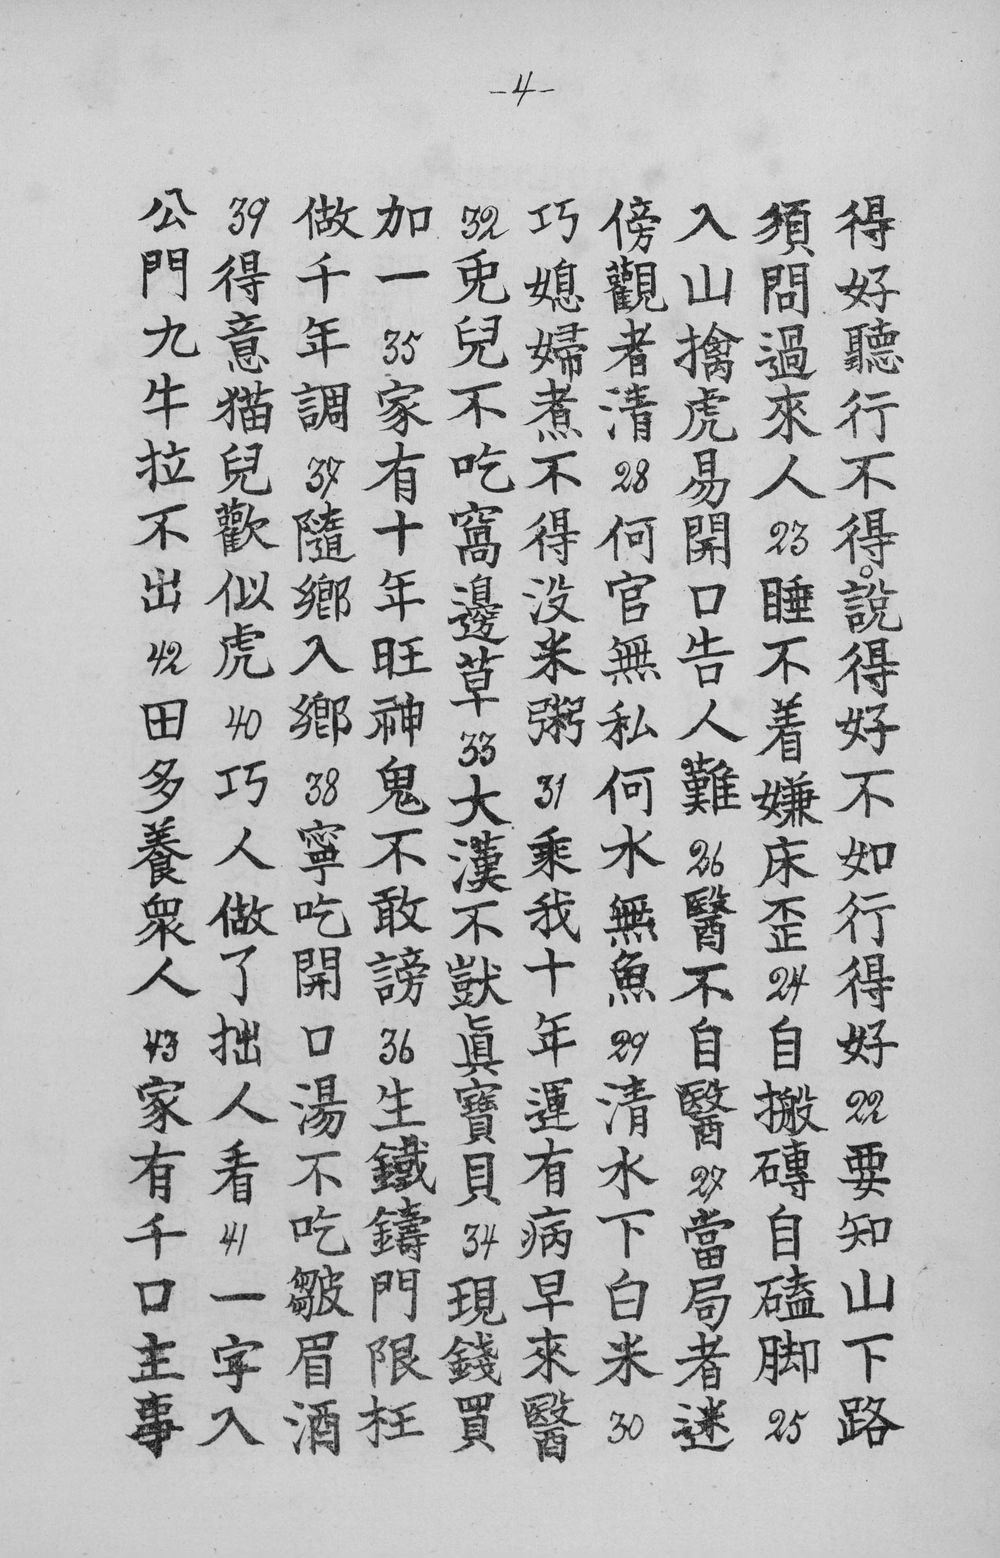 -4-
得好聽行不得。說得好不如行得好22要知山下路
須問過來人23睡不着嫌床歪24自搬磚自磕脚25
入山擒虎易開口告人難26醫不自醫27當局者迷
傍觀者清28何官無私何水無魚29清水下白米30
巧媳婦煮不得没米粥31乘我十年運有病早來醫
32兎兒不吃窩邊草33大漢不獃眞寶貝34現錢買
加一35家有十年旺神鬼不敢謗36生鐵鑄門限枉
做千年調37隨鄉入鄉38寧吃開口湯不吃皺眉酒
39得意猫兒歡似虎40巧人做了拙人看41一字入
公門九牛拉不出42田多養衆人43家有千口主事